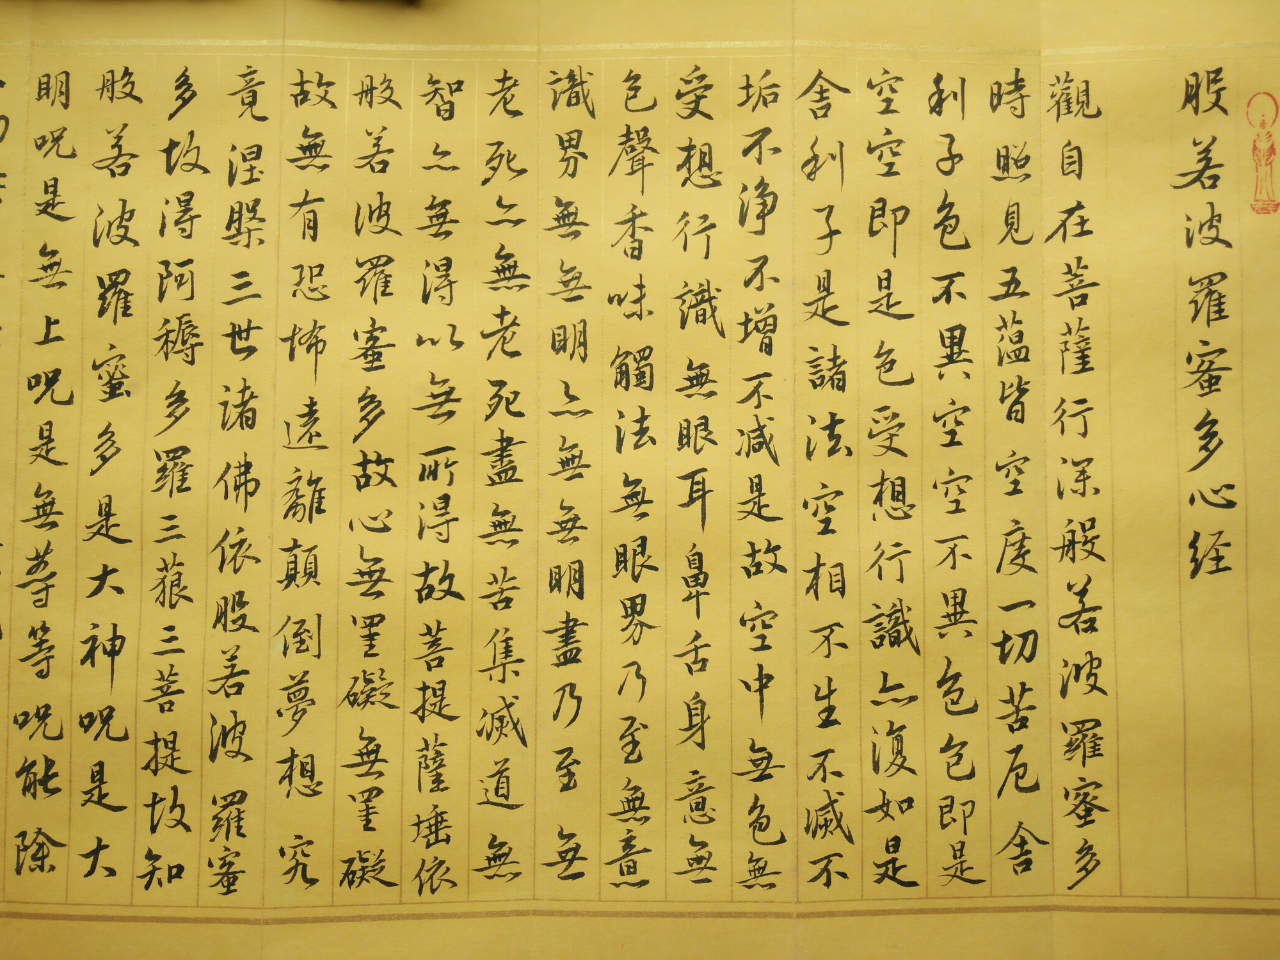 般若波羅蜜多心经
觀自在菩薩行深般若波羅蜜多
時照見五蕴皆空度一切苦厄舍
利子色不異空空不異色色即是
空空即是色受想行識亦復如是
舍利子是諸法空相不生不滅不
垢不淨不增不減是故空中無色無
受想行識無眼耳鼻舌身意無
色聲香味觸法無眼界乃至無意
識界無無明亦無無明盡乃至無
老死亦無老死盡無苦集滅道無
智亦無得以無所得故菩提薩埵依
般若波羅蜜多故心無罣礙無罣礙
故無有恐怖遠離顛倒夢想究
竟涅槃三世諸佛依般若波羅蜜
多故得阿耨多羅三藐三菩提故知
般若波羅蜜多是大神呪是大
明呪是無上呪是無等等呪能除